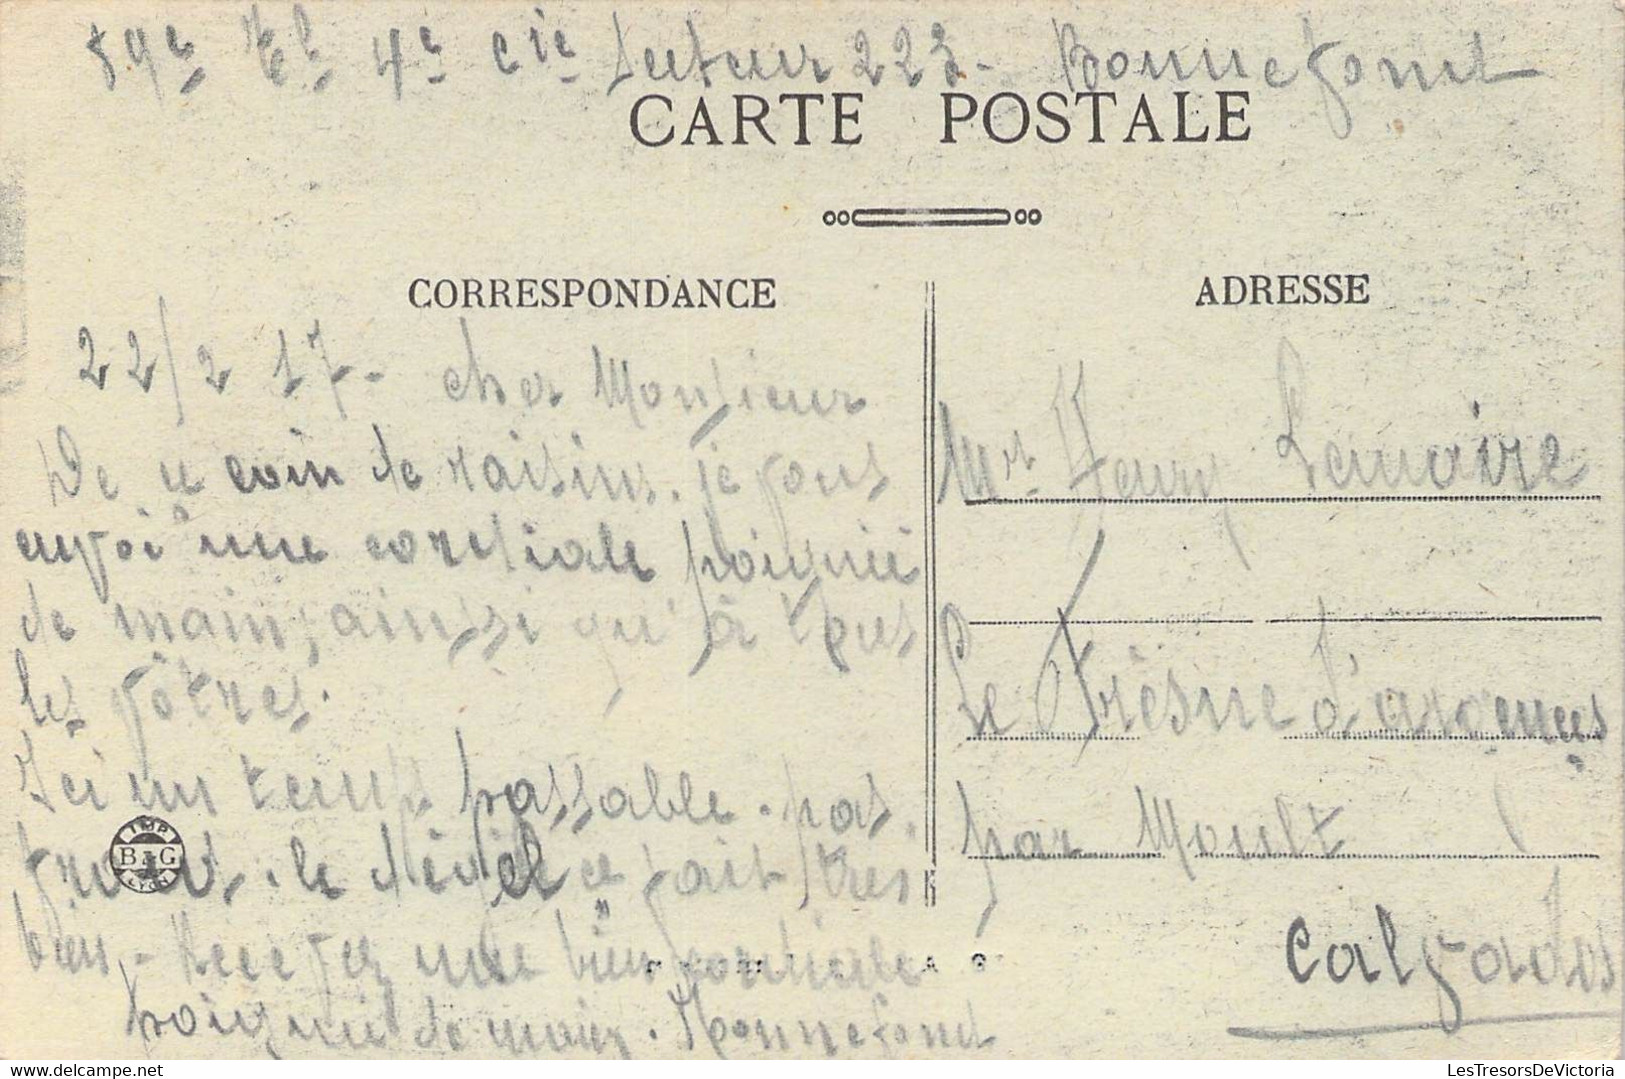 59e Tl 4e Cie Secteur 223 - Bonnefont
CARTE POSTALE
CORRESPONDANCE
ADRESSE
22/2 17 - cher Monsieur
De coin de raisins. je vous
envoi une cordiale poignée
de main, ainssi qu'à tous
les vôtres.
Ici un temps passable. pas
froid. le dégel ce fait tres
bien - Recevez une bien cordiale
poignée de main. Bonnefont
IMP
B & G
LYON
Mr Henry Lemoire
Le Frèsne d'argenses
par Moult
Calvados
LesTresorsDeVictoria
www.delcampe.net